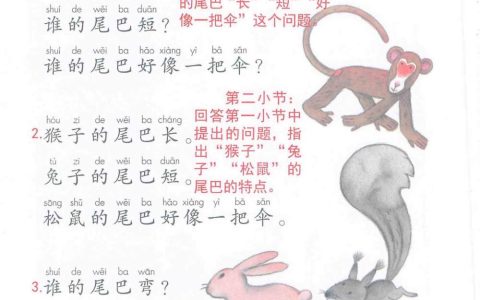 的尾巴“长”“短”“好
shuí de wěi ba duǎn
谁的尾巴短？
像一把伞”这个问题。
shuí de wěi ba hǎo xiàng yì bǎ sǎn
谁的尾巴好像一把伞？
hóu zi de wěi ba cháng
2.猴子的尾巴长。
tù zi de wěi ba duǎn
兔子的尾巴短。
sōng shǔ de wěi ba hǎo xiàng yì bǎ sǎn
松鼠的尾巴好像一把伞。
第二小节：
回答第一小节中
提出的问题，指
出“猴子”“兔
子”“松鼠”的
尾巴的特点。
shuí de wěi ba wān
3.谁的尾巴弯？